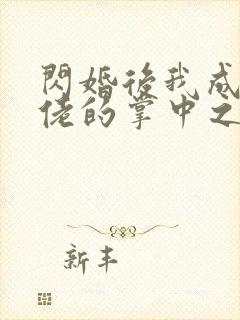 閃婚後我成
佬的掌中之
新丰